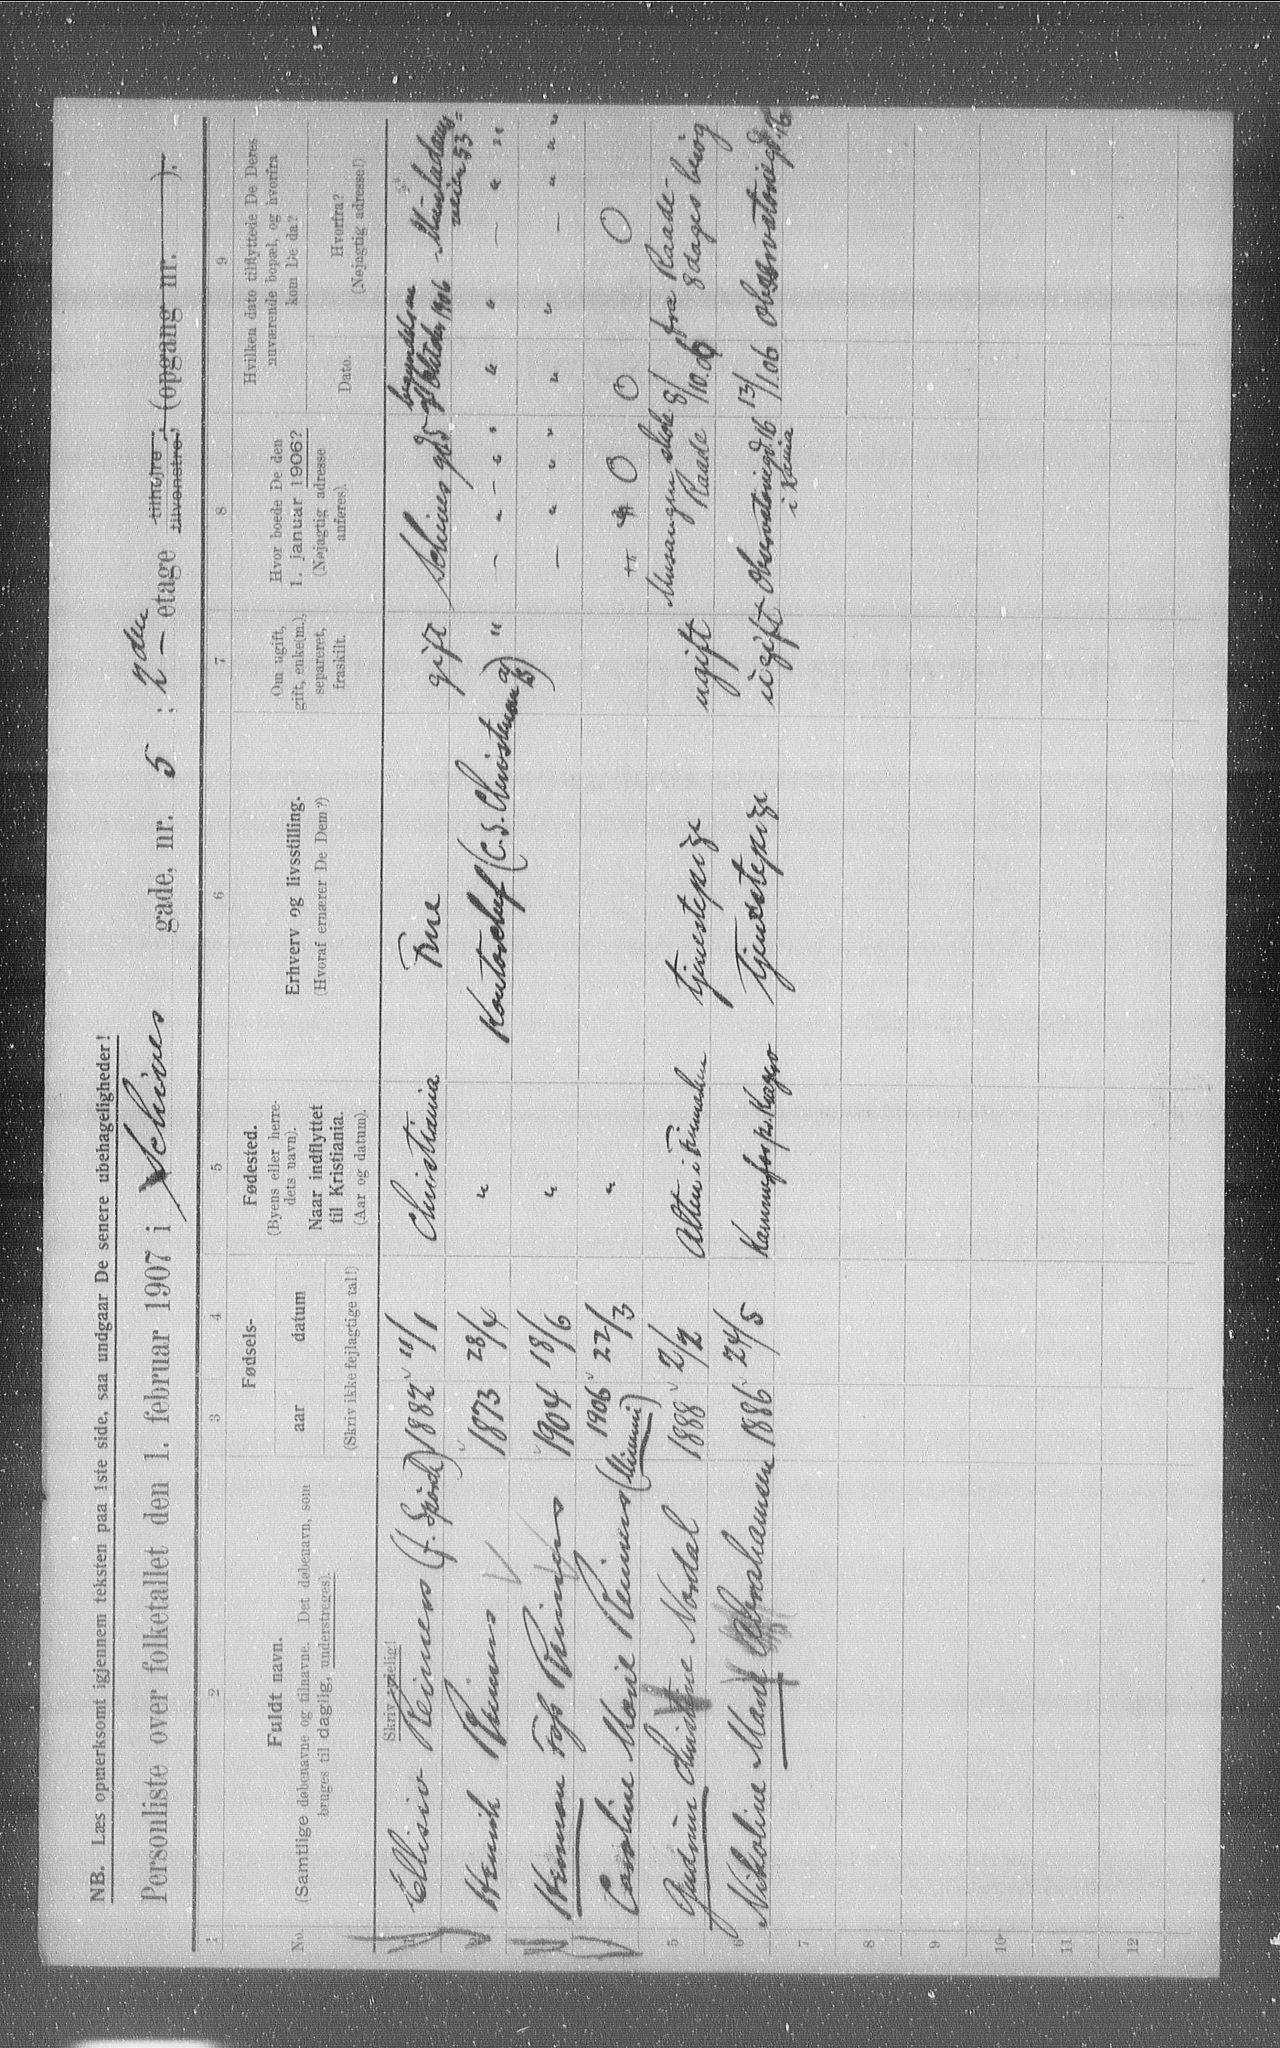 NB. Læs opmerksomt igjennem teksten paa 1ste side, saa undgaar De senere ubehageligheder!
Personliste over folketallet den 1. februar 1907 i Schives gade, nr. 5 ; 2den etage tilhøjre, tilvenstre, (opgang nr. ).
1 2 3 4 5 6 7 8 9
No.
Fuldt navn.
(Samtlige døbenavne og tilnavne. Det døbenavn, som
bruges til daglig, understreges).
Fødsels-
aar datum
(Skriv ikke fejlagtige tal!)
Fødested.
(Byens eller herre-
dets navn).
Naar indflyttet
til Kristiania.
(Aar og datum).
Erhverv og livsstilling.
(Hvoraf ernærer De Dem?)
Om ugift,
gift, enke(m.),
separeret,
fraskilt.
Hvor boede De den
1. januar 1906?
(Nøjagtig adresse
anføres).
Hvilken dato tilflyttede De Deres
nuværende bopæl, og hvorfra
kom De da?
Dato.
Hvorfra?
(Nøjagtig adresse!)
Skriv tydelig!
1 Reimers (f. ) 1882 11/1 Christiania Frue gift Schives gd 5 Oktober 1906 veien 53
2 Henrik Reimers 1873 28/4 " Kontorchef (C. S. Christensen " — " — " " " " — " "
3 Herman Foss Reimers 1904 18/6 " — " " " " " — " "
4 Caroline Marie Reimers (Mimmi) 1906 22/3 " O O O
5 Gudrun Nordal 1888 2/2 Alten i Finmarken tjenestepige ugift skole Raade 8/10.06 fra Raade - 8 dages besøg
6 Nikoline Marie Abrahamsen 1886 24/5 Kragerø Tjenestepige ugift Observatoriegd. 16 i Kania 13/1.06 Observatoriegd. 16
7
8
9
10
11
12